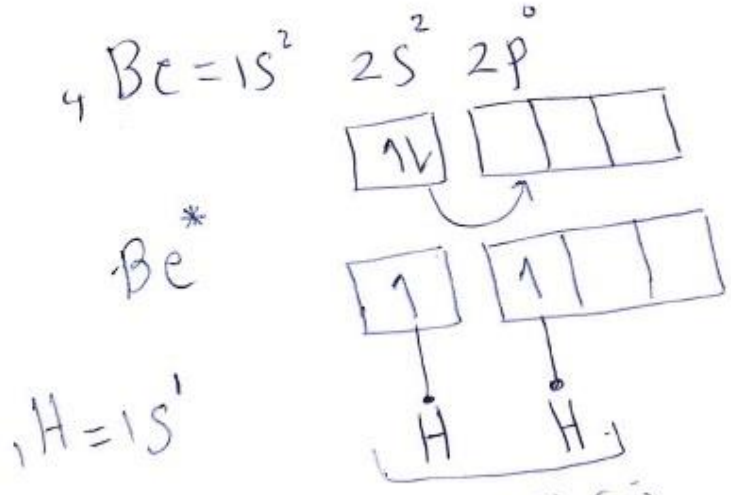 ₄Be = 1s² 2s² 2p⁰
↑↓
Be*
↑ ↑
₁H = 1s¹
H H